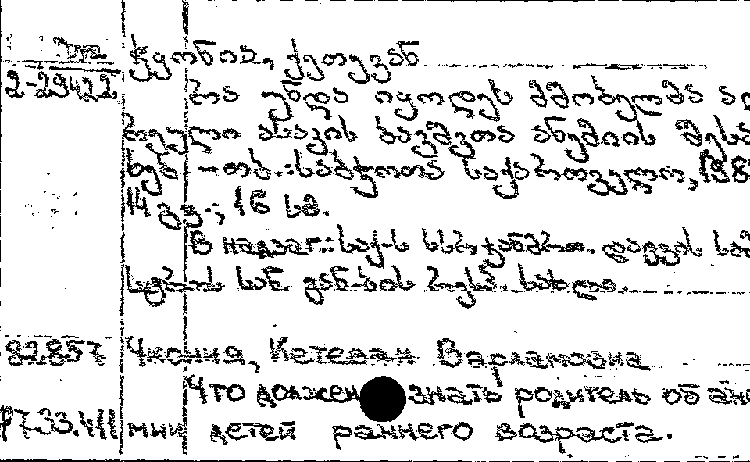 2-29422 ჭყონია, ქეთევან
რა უნდა იცოდეს მშობელმა ად
რეული ასაკის ბავშვთა ანემიის შესა
ხებ – თბ.: საბჭოთა საქართველო, 198
14 გვ.; 16 სმ.
В надзаг.: საქ-ს სსრ ჯანმრთ. დაცვის სამ
82857 Чкония, Кетеван Варламовна
Что должен знать родитель об ане
733.411 мии детей раннего возраста.